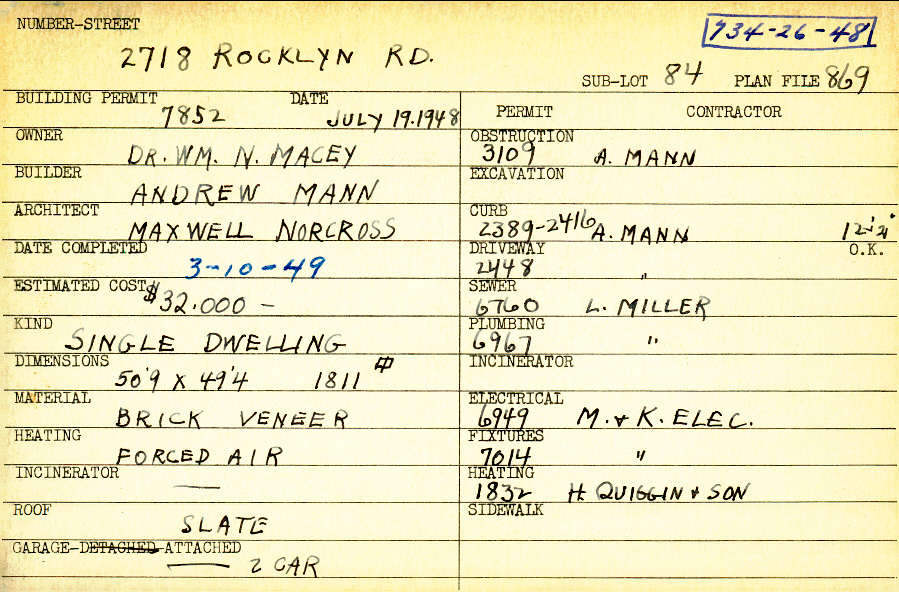 NUMBER-STREET
734-26-48
2718 ROCKLYN RD.
SUB-LOT 84 PLAN FILE 869
BUILDING PERMIT DATE
7852 JULY 19.1948
PERMIT CONTRACTOR
OWNER
DR. WM. N. MACEY
OBSTRUCTION
3109 A. MANN
BUILDER
ANDREW MANN
EXCAVATION
ARCHITECT
MAXWELL NORCROSS
CURB
2389-2416 A. MANN
O.K.
DATE COMPLETED
3-10-49
DRIVEWAY
2448 "
ESTIMATED COST
$32.000 -
SEWER
6760 L. MILLER
KIND
SINGLE DWELLING
PLUMBING
6967 "
DIMENSIONS
50'9 X 49'4 1811
INCINERATOR
MATERIAL
BRICK VENEER
ELECTRICAL
6949 M. & K. ELEC.
HEATING
FORCED AIR
FIXTURES
7014 "
INCINERATOR
—
HEATING
1832 H. QUIGGIN & SON
ROOF
SLATE
SIDEWALK
GARAGE-DETACHED-ATTACHED
2 CAR